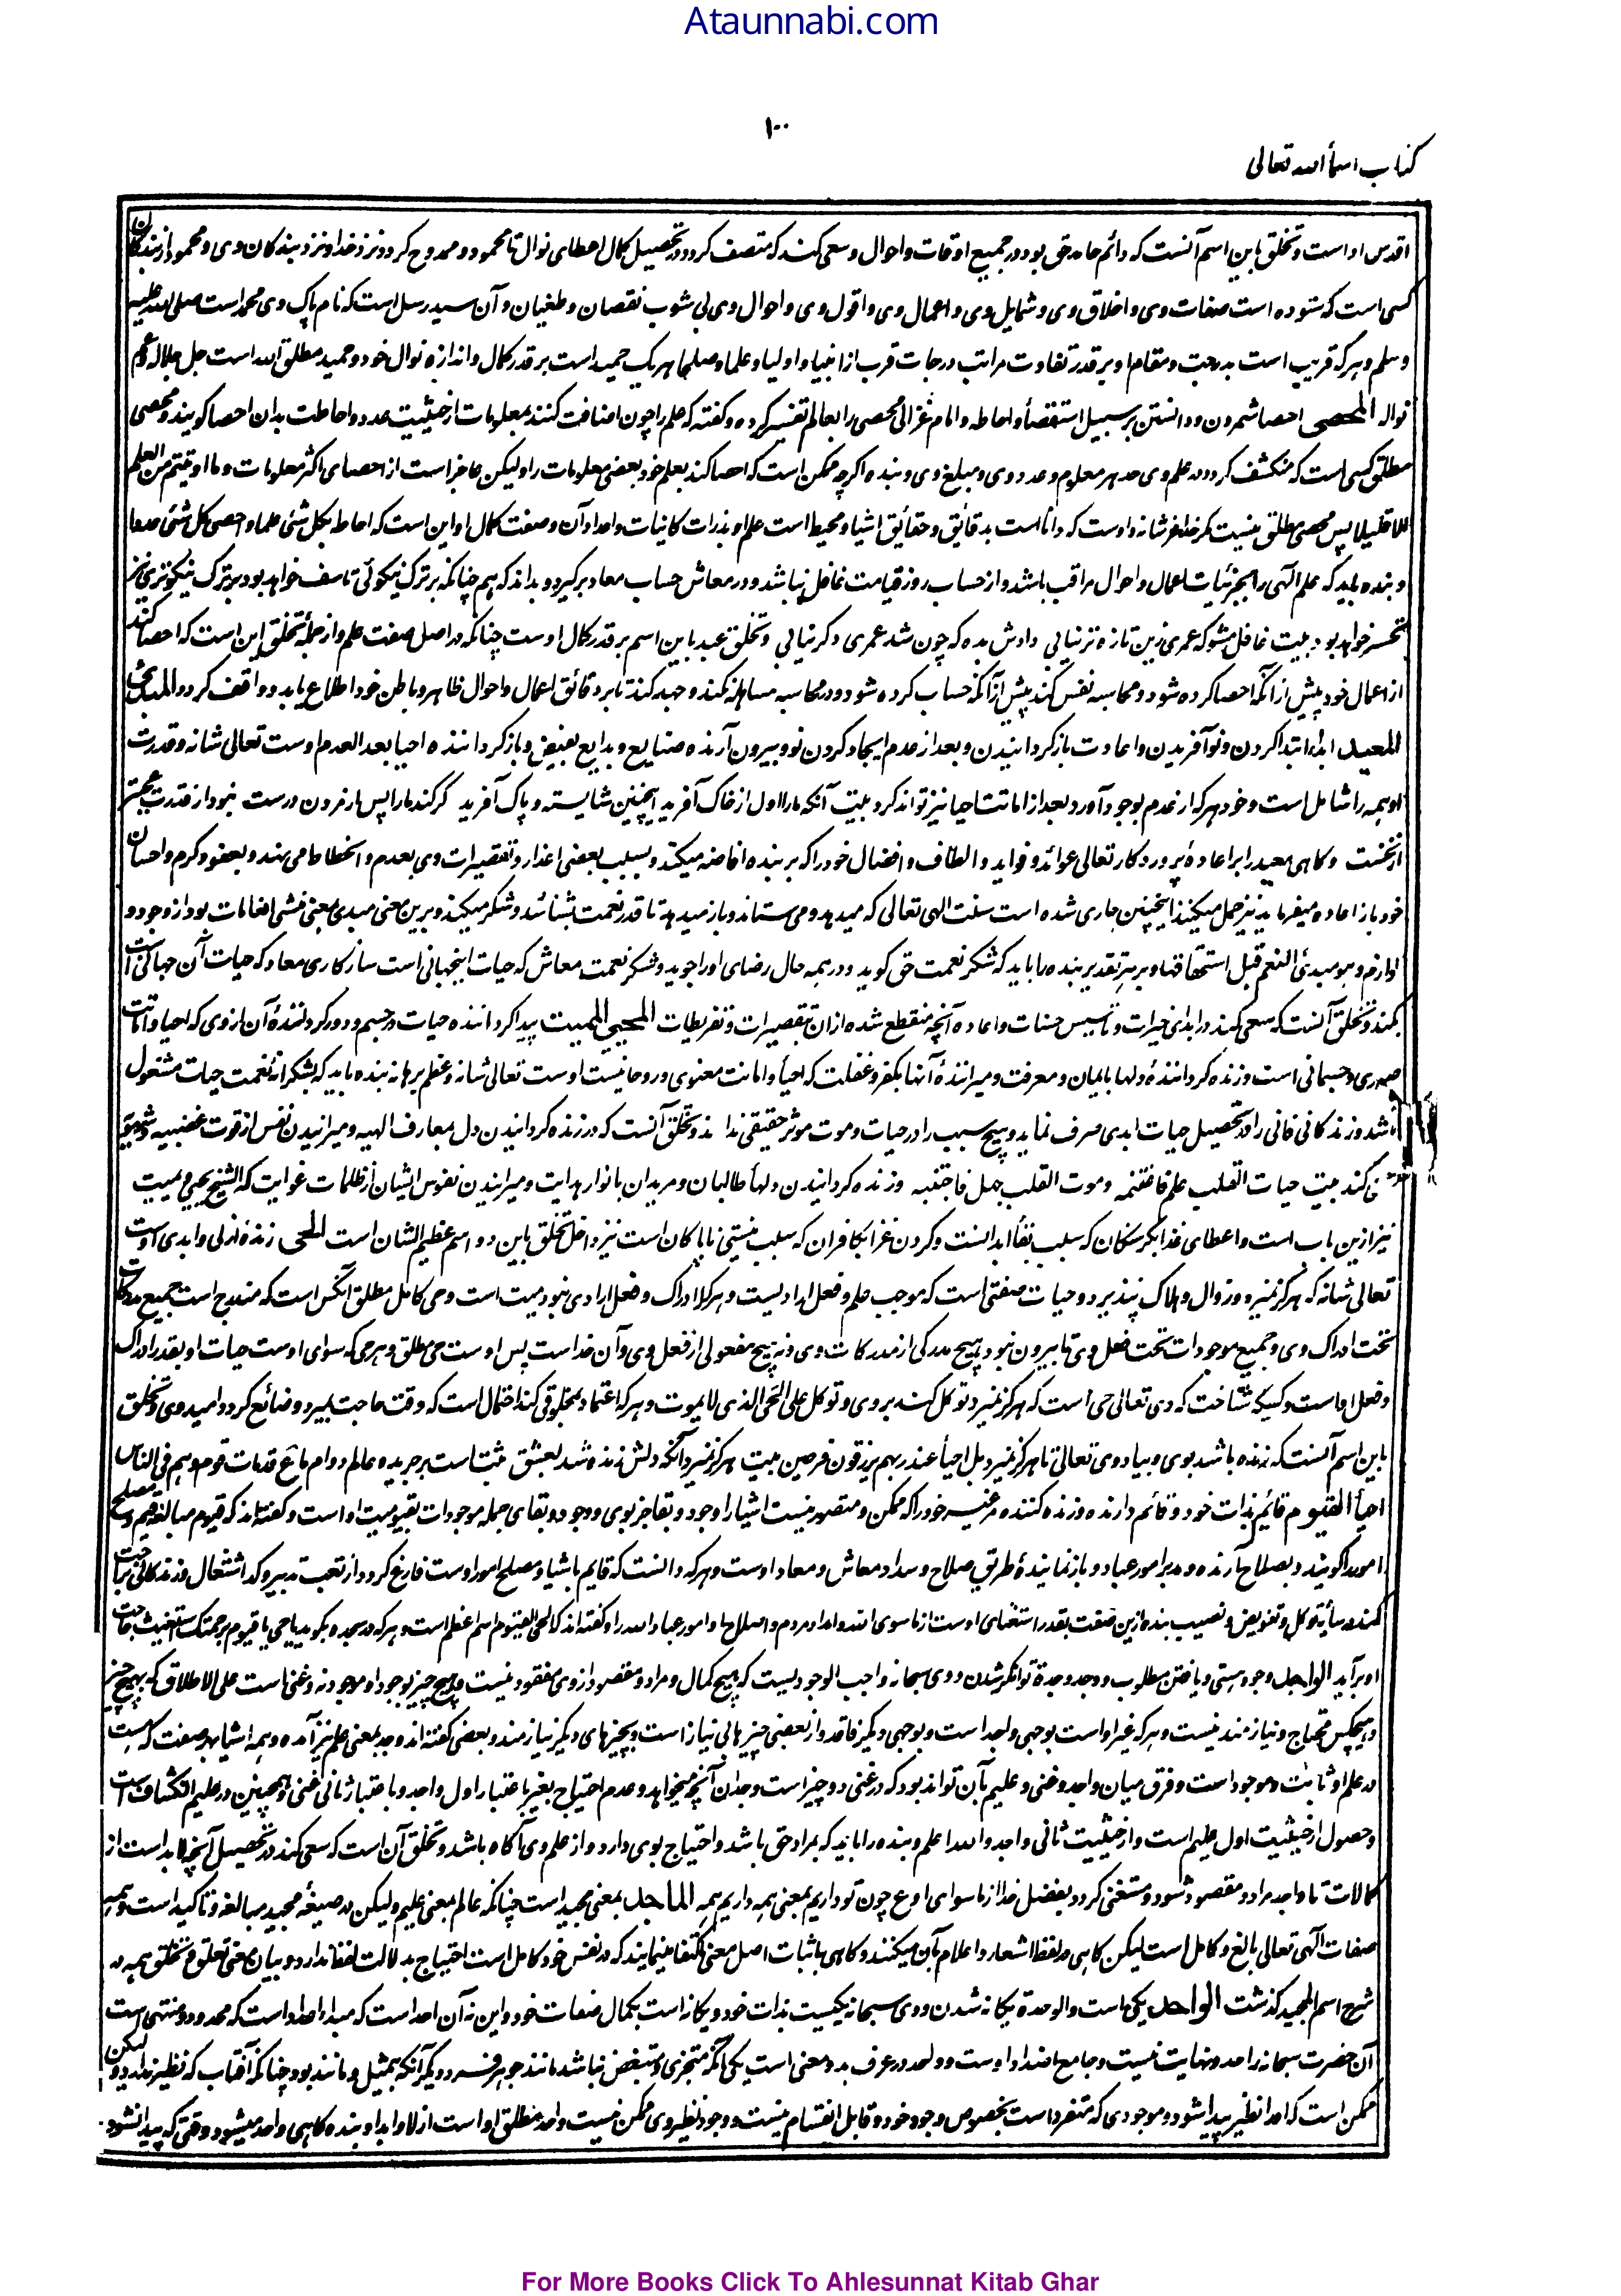 Ataunnabi.com
۱۰۰
کتاب اسمأ الله تعالی
اقدس او است و تخلق باین اسم آنست که دائم حامد حق بود در جمیع اوقات و احوال و سعی کند که متصف کردد در تحصیل کمال اعطای نوال تا محمود و ممدوح کردد نزد خدا و نزد بندکان وی و محمود از بندکان
کسی است که ستوده است صفات وی و اخلاق وی و شمایل وی و اعمال وی و اقول وی و احوال وی بی شوب نقصان و طغیان و آن سید رسل است که نام پاک وی محمد است صلی الله علیه
وسلم و هر که قریب است بدرجت و مقام او بر قدر تفاوت مراتب درجات قرب از انبیا و اولیا و علما و صلحا هر یک حمید است بر قدر کمال و اندازه نوال خود و حمید مطلق الله است جل جلاله و عم
نواله المحصی احصا شمردن و دانستن بر سبیل استقصأ و احاطه و امام غزالی محصی را بعالم تفسیر کرده و کفته که علم را چون اضافت کنند بمعلومات از حیثیت عدد و احاطت بدان احصا کویند و محصی
مطلق کسی است که منکشف کردد در علم وی حد هر معلوم و عدد وی و مبلغ وی و بنده اکرچه ممکن است که احصا کند بعلم خود بعضی معلومات را ولیکن عاجز است از احصای اکثر معلومات و ما اوتیتم من العلم
الا قلیلا پس محصی مطلق نیست مکر خدا عز شانه و اوست که دانا است بدقائق و حقائق اشیا و محیط است علم او بذرات کائنات و اعداد آن و صفت کمال او این است که احاط بکل شئی علما و احصی کل شئی عددا
و بنده باید که علم الٓهی را بجزئیات اعمال و احوال مراقب باشد و از حساب روز قیامت غافل نباشد و در معاش حساب معاد برکیرد و بداند که هم چنانکه بر ترک نیکوئی تاسف خواهد بود بر ترک نیکوتری نیز
تحسر خواهد بود بیت غافل مشو که عمری زین تازه تر نیابی دادش بده که چون شد عمری دکر نیابی و تخلق عبد باین اسم بر قدر کمال اوست چنانکه در اصل صفت علم و از جملهٔ تخلق این است که احصا کند
از اعمال خود پیش از آنکه احصا کرده شود و محاسبه نفس کند پیش از آنکه حساب کرده شود و در محاسبه مساهله نکند و جهد کند تا بر دقائق اعمال و احوال ظاهر و باطن خود اطلاع یابد و واقف کردد المبدئ
المعید ابداء ابتدا کردن و نو آفریدن و اعادت باز کردانیدن و بعد از عدم ایجاد کردن نو و بیرون آرنده صنایع و بدایع بفیض و باز کردانیده احیا بعد العدم اوست تعالی شانه و قدرت
او همه را شامل است و خود هر که از عدم بوجود آورد بعد از اماتت احیا نیز تواند کرد بیت آنکه ما را اول از خاک آفرید این چنین شایسته و پاک آفرید کر کند ما را پس از مردن درست نبود از قدرت عجبتر
از نخست و کاهی معید را بر اعادهٔ پروردکار تعالی عوائد و فواید و الطاف و افضال خود را که بر بنده افاضه میکند و بسبب بعضی اعذار و تقصیرات وی بعدم و انحطاط می نهند و بعفو و کرم و احسان
خود باز اعاده میفرماید نیز حمل میکنند این چنین جاری شده است سنت الهی تعالی که میدهد و می ستاند و باز میدهد تا قدر نعمت بشناسند و شکر میکنند و برین معنی مبدی بمعنی منشی انعامات بود از وجود و
لوازم و هو مبدئ النعم قبل استحقاقها و بر هر تقدیر بنده را باید که شکر نعمت حق کوید و در همه حال رضای او را جوید و شکر نعمت معاش که حیات اینجهانی است سازکاری معاد که حیات آن جهانی است
بکند و تخلق آنست که سعی کند در ابدای خیرات و تاسیس حسنات و اعاده آنچه منقطع شده از آن بتقصیرات و تفریطات المحیی الممیت پیدا کرداننده حیات در جسم و دور کردانندهٔ آن از وی که احیا و اماتت
صوری و جسمانی است و زنده کردانندهٔ دلها بایمان و معرفت و میرانندهٔ آنها بکفر و غفلت که احیأ و اماتت معنوی و روحانیست اوست تعالی شانه و عظم برهانه بنده باید که بشکرانهٔ نعمت حیات مشغول
باشد و زندکانی فانی را در تحصیل حیات ابدی صرف نماید و هیچ سبب را در حیات و موت موثر حقیقی نداند و تخلق آنست که در زنده کردانیدن دل بمعارف الهیه و میرانیدن نفس از قوت غضبیه و شهویه
کند بیت حیات القلب علم فاغتنمه وموت القلب جهل فاجتنبه و زنده کردانیدن دلهأ طالبان و مریدان بانوار هدایت و میرانیدن نفوس ایشان از ظلمات غوایت که الشیخ یحیی و یمیت
نیز ازین باب است و اعطای غذا بکرسنکان که سبب بقأ ابدانست و کردن غزا بکافران که سبب نیستی ناپاکان است نیز داخل تخلق باین دو اسم عظیم الشان است الحی زندهٔ ازلی و ابدی اوست
تعالی شانه که هرکز نمیرد و زوال و هلاک نپذیرد و حیات صفتی است که موجب علم و فعل ارادیست و هر کرا ادراک و فعل ارادی نبود میت است و حی کامل مطلق آنکس است که مندرج است جمیع مدرکات
تحت ادراک وی و جمیع موجودات تحت فعل وی تا بیرون نبود هیچ مدرکی از مدرکات وی و نه هیچ مفعولی از فعل وی و آن خداست پس اوست حی مطلق و هر حی که سوای اوست حیات او بقدر ادراک
و فعل او است و کسیکه شناخت که وی تعالی حی است که هرکز نمیرد توکل کند بر وی و توکل علی الحی الذی لا یموت و هر که اعتماد بمخلوقی کند احتمال است که وقت حاجت بمیرد و ضائع کردد امید وی و تخلق
باین اسم آنست که زنده باشد بوی و بیاد وی تعالی تا هرکز نمیرد بل احیأ عند ربهم یرزقون فرحین بیت هرکز نمیرد آنکه دلش زنده شد بعشق ثبت است بر جریده عالم دوام ما ع قدمات قوم وهم فی الناس
احیأ القیوم قائم بذات خود و قائم دارنده و زنده کننده مر غیر خود را که ممکن و متصور نیست اشیا را وجود و بقا جز بوی و وجود و بقای جمله موجودات بقیومیت او است و کفته اند که قیوم مبالغه قیم و مصلح
امور را کویند و بصلاح آرنده و مدبر امور عباد و باز نمایندهٔ طریق صلاح و سداد معاش و معاد اوست و هر که دانست که قایم باشیا و مصلح امور اوست فارغ کردد از تعب تدبیر و کد اشتغال و زندکانی براحت
کند در سایهٔ توکل و تفویض و نصیب بنده ازین صفت بقدر استغنای اوست از ما سوی الله و امداد مردم و اصلاح امور عباد الله را و کفته اند که الحی القیوم اسم اعظم است و هر که در سجده بکوید یا حی یا قیوم برحمتک استغیث حاجت
او برآید الواجد وجود هستی و یافتن مطلوب و وجد و جدة توانکر شدن و وی سبحانه واجب الوجودیست که هیچ کمال و مراد و مقصود از وی مفقود نیست و هیچ چیز بوجود او موجود نه و غنی است علی الاطلاق که بهیچ چیز
و بهیچکس محتاج و نیازمند نیست و هر که غیر او است بوجهی واجد است و بوجهی دیکر فاقد و از بعضی چیزها بی نیاز است و بچیزهای دیکر نیازمند و بعضی کفته اند وجد بمعنی علم نیز آمده و همه اشیا بهر صفت که هست
در علم او ثابت و موجود است و فرق میان واجد و غنی و علیم بآن تواند بود که در غنی دو چیز است وجدان آنچه میخواهد و عدم احتیاج بغیر باعتبار اول واجد و باعتبار ثانی غنی و همچنین در علیم انکشاف است
و حصول از حیثیت اول علیم است و از حیثیت ثانی واجد والله اعلم و بنده را باید که بمراد حق باشد و احتیاج بوی دارد و از علم وی آکاه باشد و تخلق آن است که سعی کند در تحصیل آنچه لابد است از
کمالات تا واجد مراد و مقصود شود و مستغنی کردد بفضل خدا از ما سوای او ع چون تو داریم بمعنی همه داریم همه الماجد بمعنی مجید است چنانکه عالم بمعنی علیم ولیکن در صیغهٔ مجید مبالغه و تاکید است و همه
صفات الٓهی تعالی بالغ و کامل است لیکن کاهی در لفظ اشعار و اعلام بآن میکنند و کاهی باثبات اصل معنی اکتفا مینمایند که در نفس خود کامل است احتیاج بدلالت لفظ ندارد و بیان معنی تعلق و تخلق همه در
شرح اسم المجید کذشت الواحد یکی است والوحدة یکانه شدن و وی سبحانه یکیست بذات خود و یکانه است بکمال صفات خود و این نه آن احد است که مبدا اعداد است که محدود و منتهی است
آن حضرت سبحانه را حد و نهایت نیست و جامع اضداد اوست و واحد در عرف بدو معنی است یکی آنکه متجزی و متبعض نباشد مانند جوهر فرد و دیکر آنکه بیمثیل و مانند بود چنانکه آفتاب که نظیر ندارد و لیکن
ممکن است که او را نظیر پیدا شود و موجودی که متفرد است بخصوص وجود خود و قابل انقسام نیست و وجود نظیر وی ممکن نیست واحد مطلق او است ازلا و ابدا و بنده کاهی واحد میشود وقتی که پیدا نشود
For More Books Click To Ahlesunnat Kitab Ghar